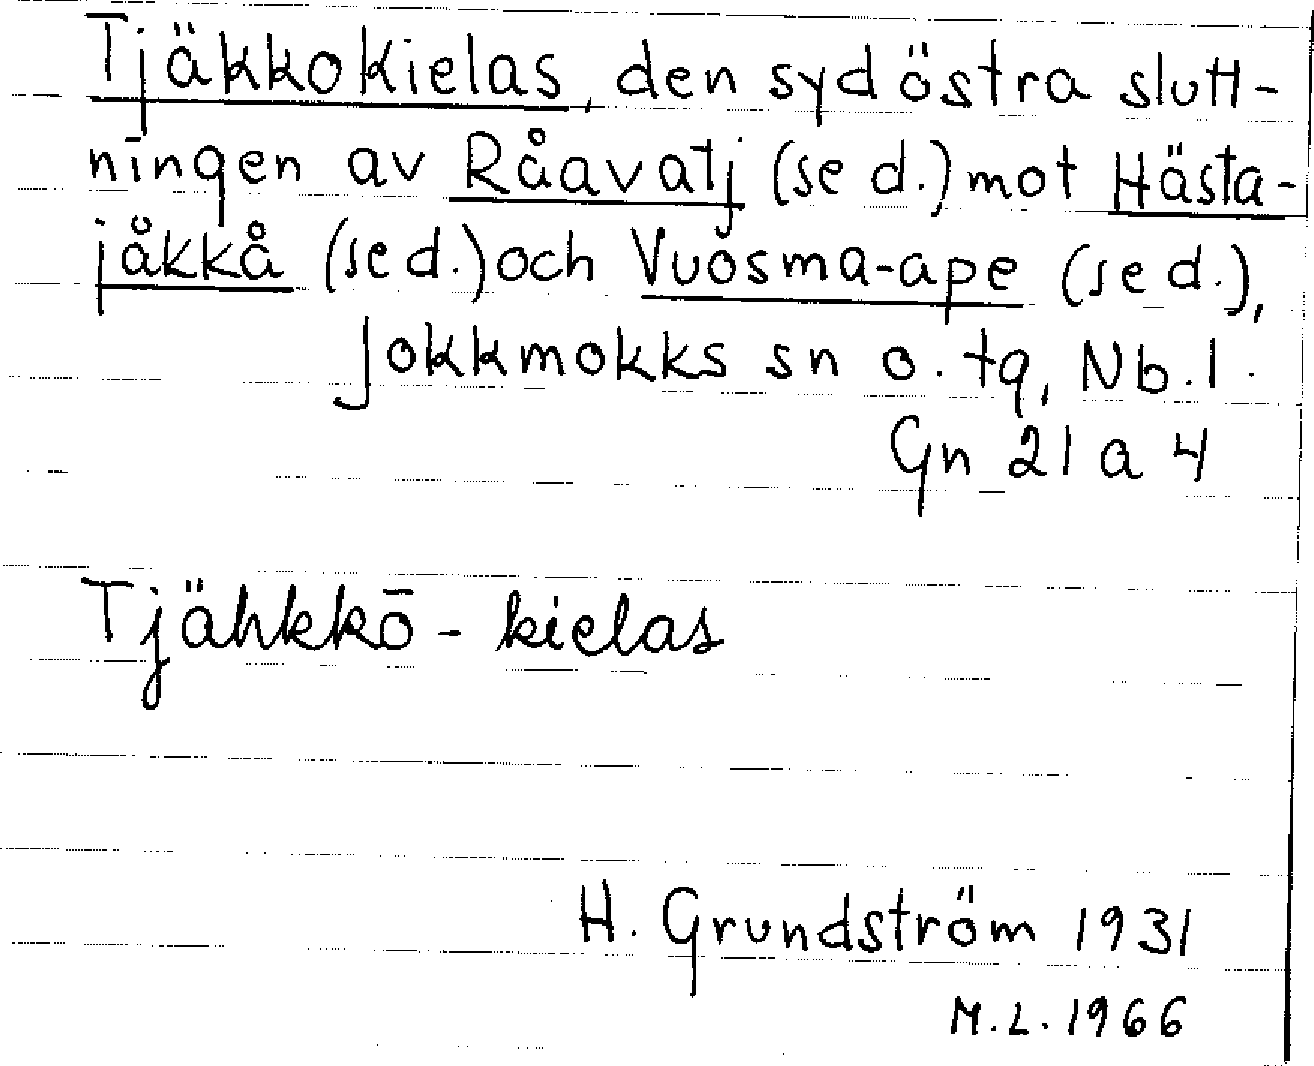 Tjäkkokielas, den sydöstra slutt-
ningen av Råavatj (se d.) mot Hästa-
jåkkå (se d.) och Vuosma-ape (se d.),
Jokkmokks sn o. tg, Nb. l.
Gn 21 a 4
Tjähkkō - kielas
H. Grundström 1931
M.L. 1966